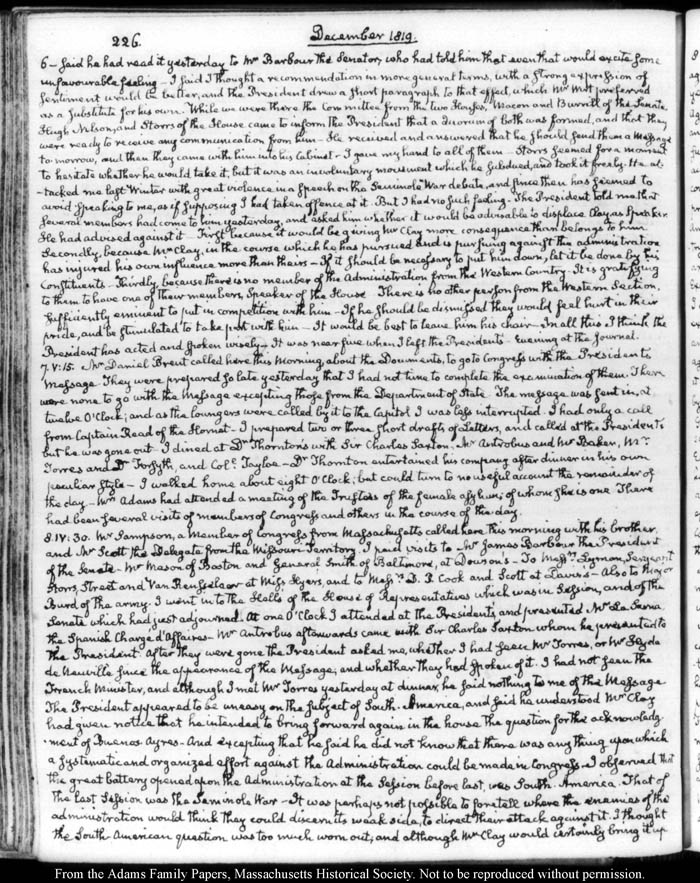 226.
December 1819.
6 — said he had read it yesterday to Mr Barbour the Senator, who had told him that even that would excite some
unfavourable feeling — I said I thought a recommendation in more general terms, with a strong expression of
Sentiment would be better, and the President drew a short paragraph to that effect, which Mr Wirt preferred
as a Substitute for his own. While we were there the Committee from the two Houses, Macon and Burrill of the Senate
Hugh Nelson, and Storrs of the House came to inform the President that a quorum of both was formed, and that they
were ready to receive any communication from him — He received and answered that he should send them a Message
to morrow, and then they came with him into his Cabinet — I gave my hand to all of them — Storrs seemed for a moment
to hesitate whether he would take it, but it was an involuntary movement which he subdued, and took it freely. He at-
-tacked me last Winter with great violence in a Speech on the Seminole War debate, and since then has seemed to
avoid Speaking to me, as if supposing I had taken offence at it. But I had no such feeling — The President told me that
several members had come to him yesterday, and asked him whether it would be advisable to displace Clay as Speaker.
He had advised against it — First because it would be giving Mr Clay more consequence than belongs to him
Secondly, because Mr Clay, in the course which he has pursued and is pursuing against this administration
has injured his own influence more than theirs — If it should be necessary to put him down, let it be done by his
Constituents — Thirdly, because there is no member of the Administration from the Western Country. It is gratifying
to them to have one of their members, Speaker of the House. There is no other person from the Western Section,
sufficiently eminent to put in competition with him — If he should be dismissed they would feel hurt in their
pride, and be stimulated to take part with him — It would be best to leave him his chair — In all this I think the
President has acted and spoken wisely — It was near five when I left the President's — Evening at the Journal.
7. V: 15. Mr Daniel Brent called here this morning, about the Documents, to go to Congress with the President's
Message. They were prepared so late yesterday that I had not time to complete the examination of them. There
were none to go with the Message excepting those from the Department of State. The message was sent in, at
twelve O'Clock; and as the loungers were called by it to the Capitol I was less interrupted. I had only a call
from Captain Read of the Hornet — I prepared two or three short drafts of Letters, and called at the President's
but he was gone out. I dined at Dr Thornton's with Sir Charles Saxton. Mr Antrobus and Mr Baker, Mr
Torres and Dr Forsyth, and Col. Tayloe — Dr Thornton entertained his company after dinner in his own
peculiar Style — I walked home about eight O'Clock; but could turn to no useful account the remainder of
the day — Mrs Adams had attended a meeting of the Trustees of the female asylum; of whom she is one. There
had been several visits of members of Congress and others in the course of the day.
8. IV: 30. Mr Sampson, a Member of Congress from Massachusetts called here this morning with his brother
and Mr Scott the Delegate from the Missouri Territory. I paid visits to Mr James Barbour the President
of the Senate — Mr Mason of Boston and General Smith of Baltimore, at Dowson's — To Messrs Lyman, Sergeant
Storrs, Street and Van Rensselaer at Miss Heyers, and to Messrs D. P. Cook and Scott at Lawrs — Also to Major
Burd of the army. I went into the Halls of the House of Representatives which was in Session, and of the
Senate which had just adjourned. At one O'Clock I attended at the President's and presented Mr La Serna
the Spanish Chargé d'Affaires — Mr Antrobus afterwards came with Sir Charles Saxton whom he presented to
the President. After they were gone the President asked me, whether I had seen Mr Torres, or Mr Hyde
de Neuville since the appearance of the Message; and whether they had spoken of it. I had not seen the
French Minister, and although I met Mr Torres yesterday at dinner, he said nothing to me of the Message
The President appeared to be uneasy on the subject of South-America, and said he understood Mr Clay
had given notice that he intended to bring forward again in the house the question for the acknowledg
-ment of Buenos Ayres — And excepting that he said he did not know that there was any thing upon which
a systematic and organized effort against the Administration could be made in Congress — I observed that
the great battery opened upon the Administration at the Session before last, was South-America. That of
the last Session was the Seminole War — It was perhaps not possible to foretell where the enemies of the
administration would think they could discern its weak side, to direct their attack against it. I thought
the South-American question was too much worn out; and although Mr Clay would certainly bring it up
From the Adams Family Papers, Massachusetts Historical Society. Not to be reproduced without permission.